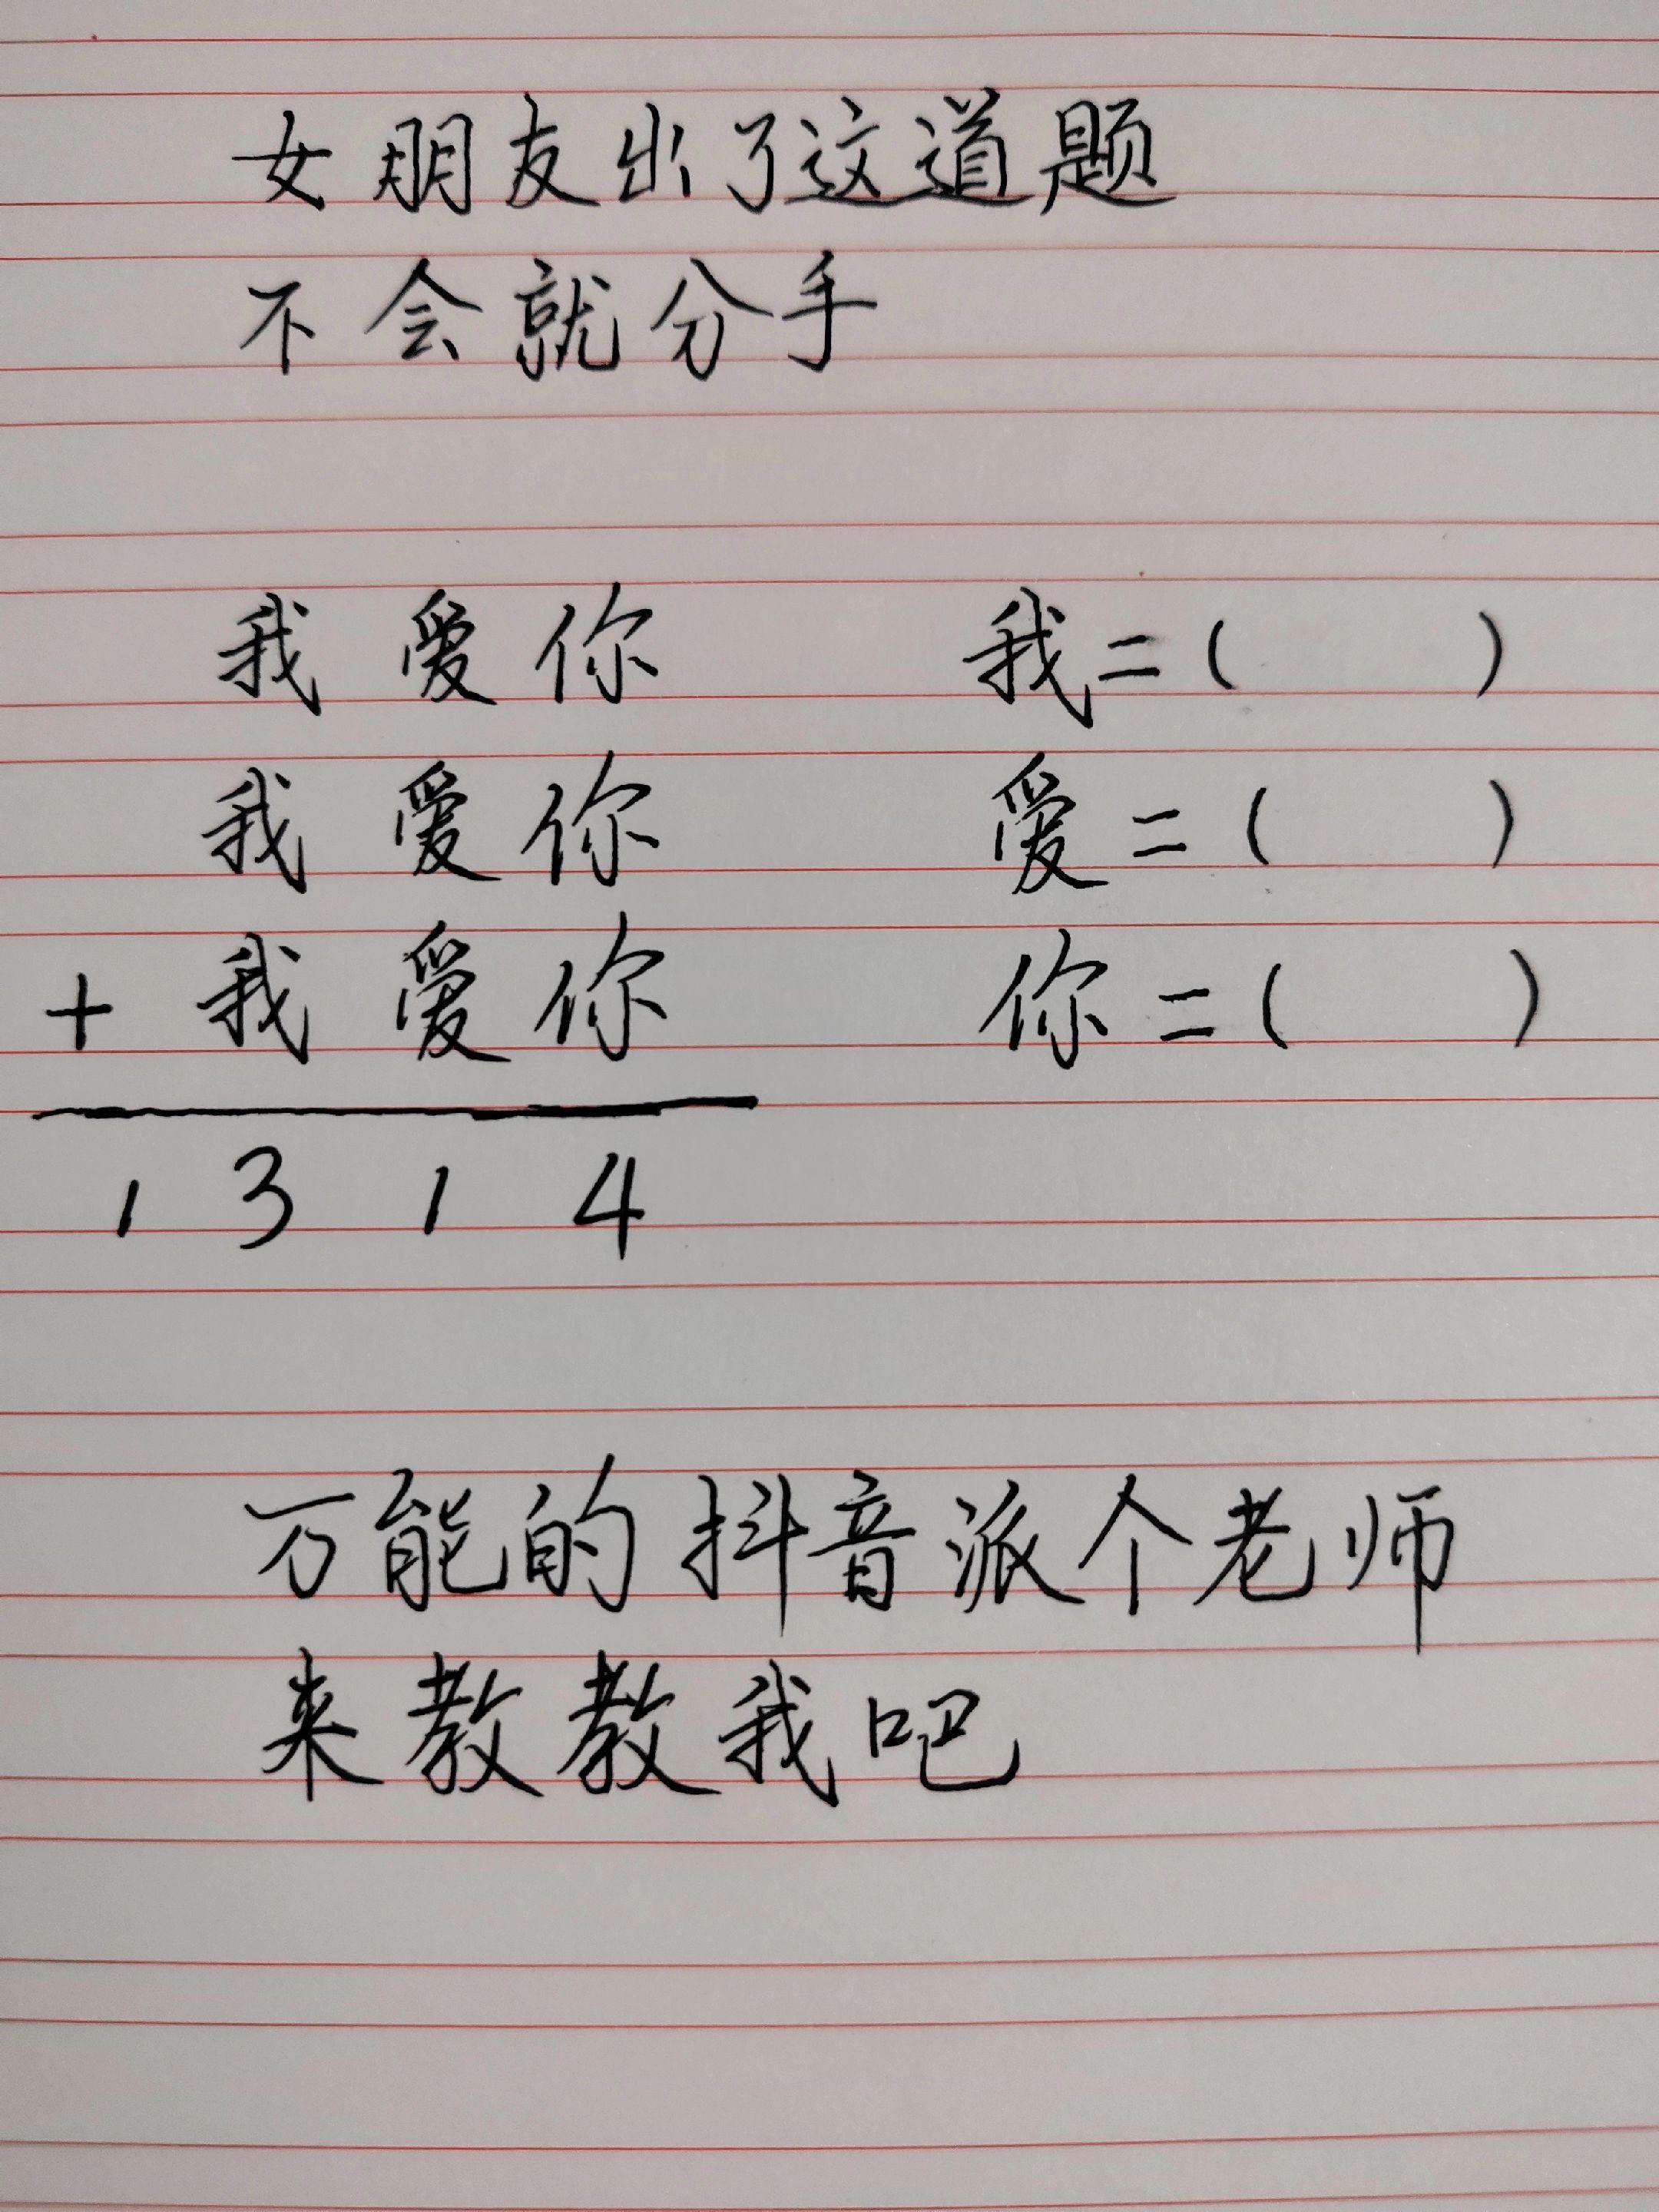 女朋友出了这道题
不会就分手
我爱你 我=( )
我爱你 爱=( )
+我爱你 你=( )
1314
万能的抖音派个老师
来教教我吧